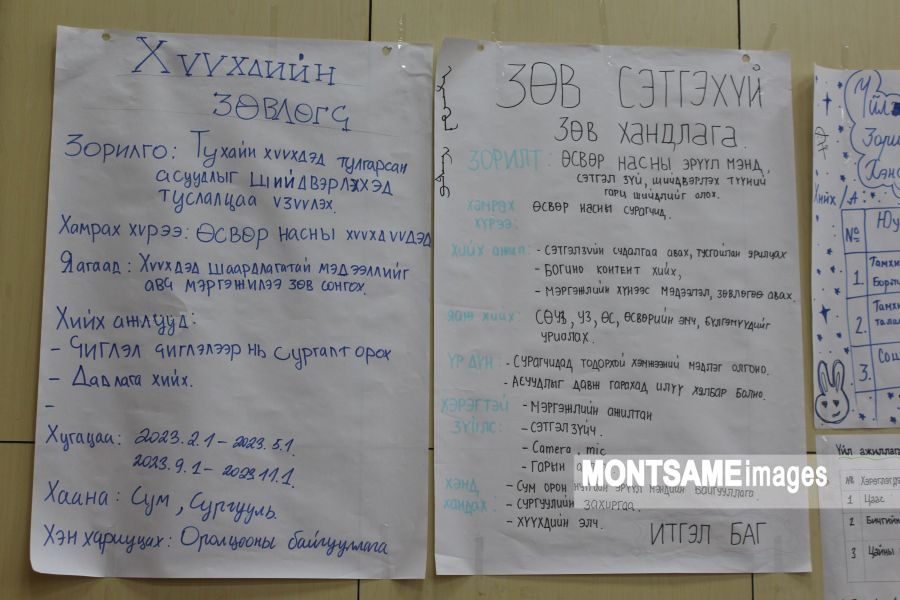 Хүүхдийн
зөвлөгч
Зорилго: Тухайн хүүхдэд тулгарсан
асуудлыг шийдвэрлэхэд
туслалцаа үзүүлэх.
Хамрах хүрээ: Өсвөр насны хүүхдүүдэд
Яагаад: Хүүхдэд шаардлагатай мэдээллийг
авч мэргэжилээ зөв сонгох.
Хийх ажлууд:
- Чиглэл чиглэлээр нь сургалт орох
- Дадлага хийх.
-
Хугацаа: 2023.2.1 – 2023.5.1
2023.9.1 – 2023.11.1
Хаана: Сум, Сургууль.
Хэн хариуцах: Оролцооны байгууллага
ЗӨВ СЭТГЭХҮЙ
ЗӨВ ХАНДЛАГА
ЗОРИЛТ: ӨСВӨР НАСНЫ ЭРҮҮЛ МЭНД,
СЭТГЭЛ ЗҮЙ, ШИЙДВЭРЛЭХ ТҮҮНИЙ
ГАРЦ ШИЙДЛИЙГ ОЛОХ.
ХАМРАХ ХҮРЭЭ: ӨСВӨР НАСНЫ СУРАГЧИД.
ХИЙХ АЖИЛ: - СЭТГЭЛЗҮЙН СУДАЛГАА АВАХ, ТУСГОЙЛАН ЯРИЛЦАХ
- БОГИНО КОНТЕНТ ХИЙХ,
- МЭРГЭЖЛИЙН ХҮНЭЭС МЭДЭЭЛЭЛ, ЗӨВЛӨГӨӨ АВАХ.
ЯАЖ ХИЙХ: УЗ, ӨС, ӨСВӨРИЙН ЭМЧ, БҮЛГЭМҮҮДИЙГ
УРИАЛАХ.
ҮР ДҮН: - СУРАГЧИДАД ТОДОРХОЙ ХЭМЖЭЭНИЙ МЭДЛЭГ ОЛГОНО.
- АСУУДЛЫГ ДАВЖ ГАРАХАД ИЛҮҮ ХЯЛБАР БОЛНО.
ХЭРЭГТЭЙ ЗҮЙЛС: - МЭРГЭЖЛИЙН АЖИЛТАН
- СЭТГЭЛ ЗҮЙЧ.
- Camera, mic
- ГАРЫН
ХЭНД ХАНДАХ: - СУМ ОРОН НУТГИЙН ЭРҮҮЛ МЭНДИЙН БАЙГУУЛЛАГА
- СУРГУУЛИЙН ЗАХИРГАА.
- ХҮҮХДИЙН ЭЛЧ.
ИТГЭЛ БАГ
MONTSAMEimages
Зори
Хэнс
Хийх /А
№
1. Тамхи
2. Тамхи
тала
3. Сош
Үйл ажиллага
№ Хэрэглэгдэ
1 Цаас
2 Бичгийн
3 Цайны